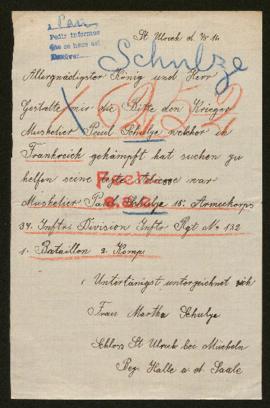 St Ulrich d
Pedir informes
Schulze
Allergnädigster König und Herr
Gestatte mir die Bitte den Krieger
Musketier Paul Schulze welcher in
Frankreich gekämpft hat suchen zu
helfen seine Adresse war
Musketier Paul Schulze 15. Armeekorps
Inftr. Division Inftr. Rgt No 132
1. Bataillon 2. Komp.
Untertänigst unterzeichnet sich
Frau Martha Schulze
Schloss St Ulrich bei Mücheln
Bez. Halle a. d. Saale